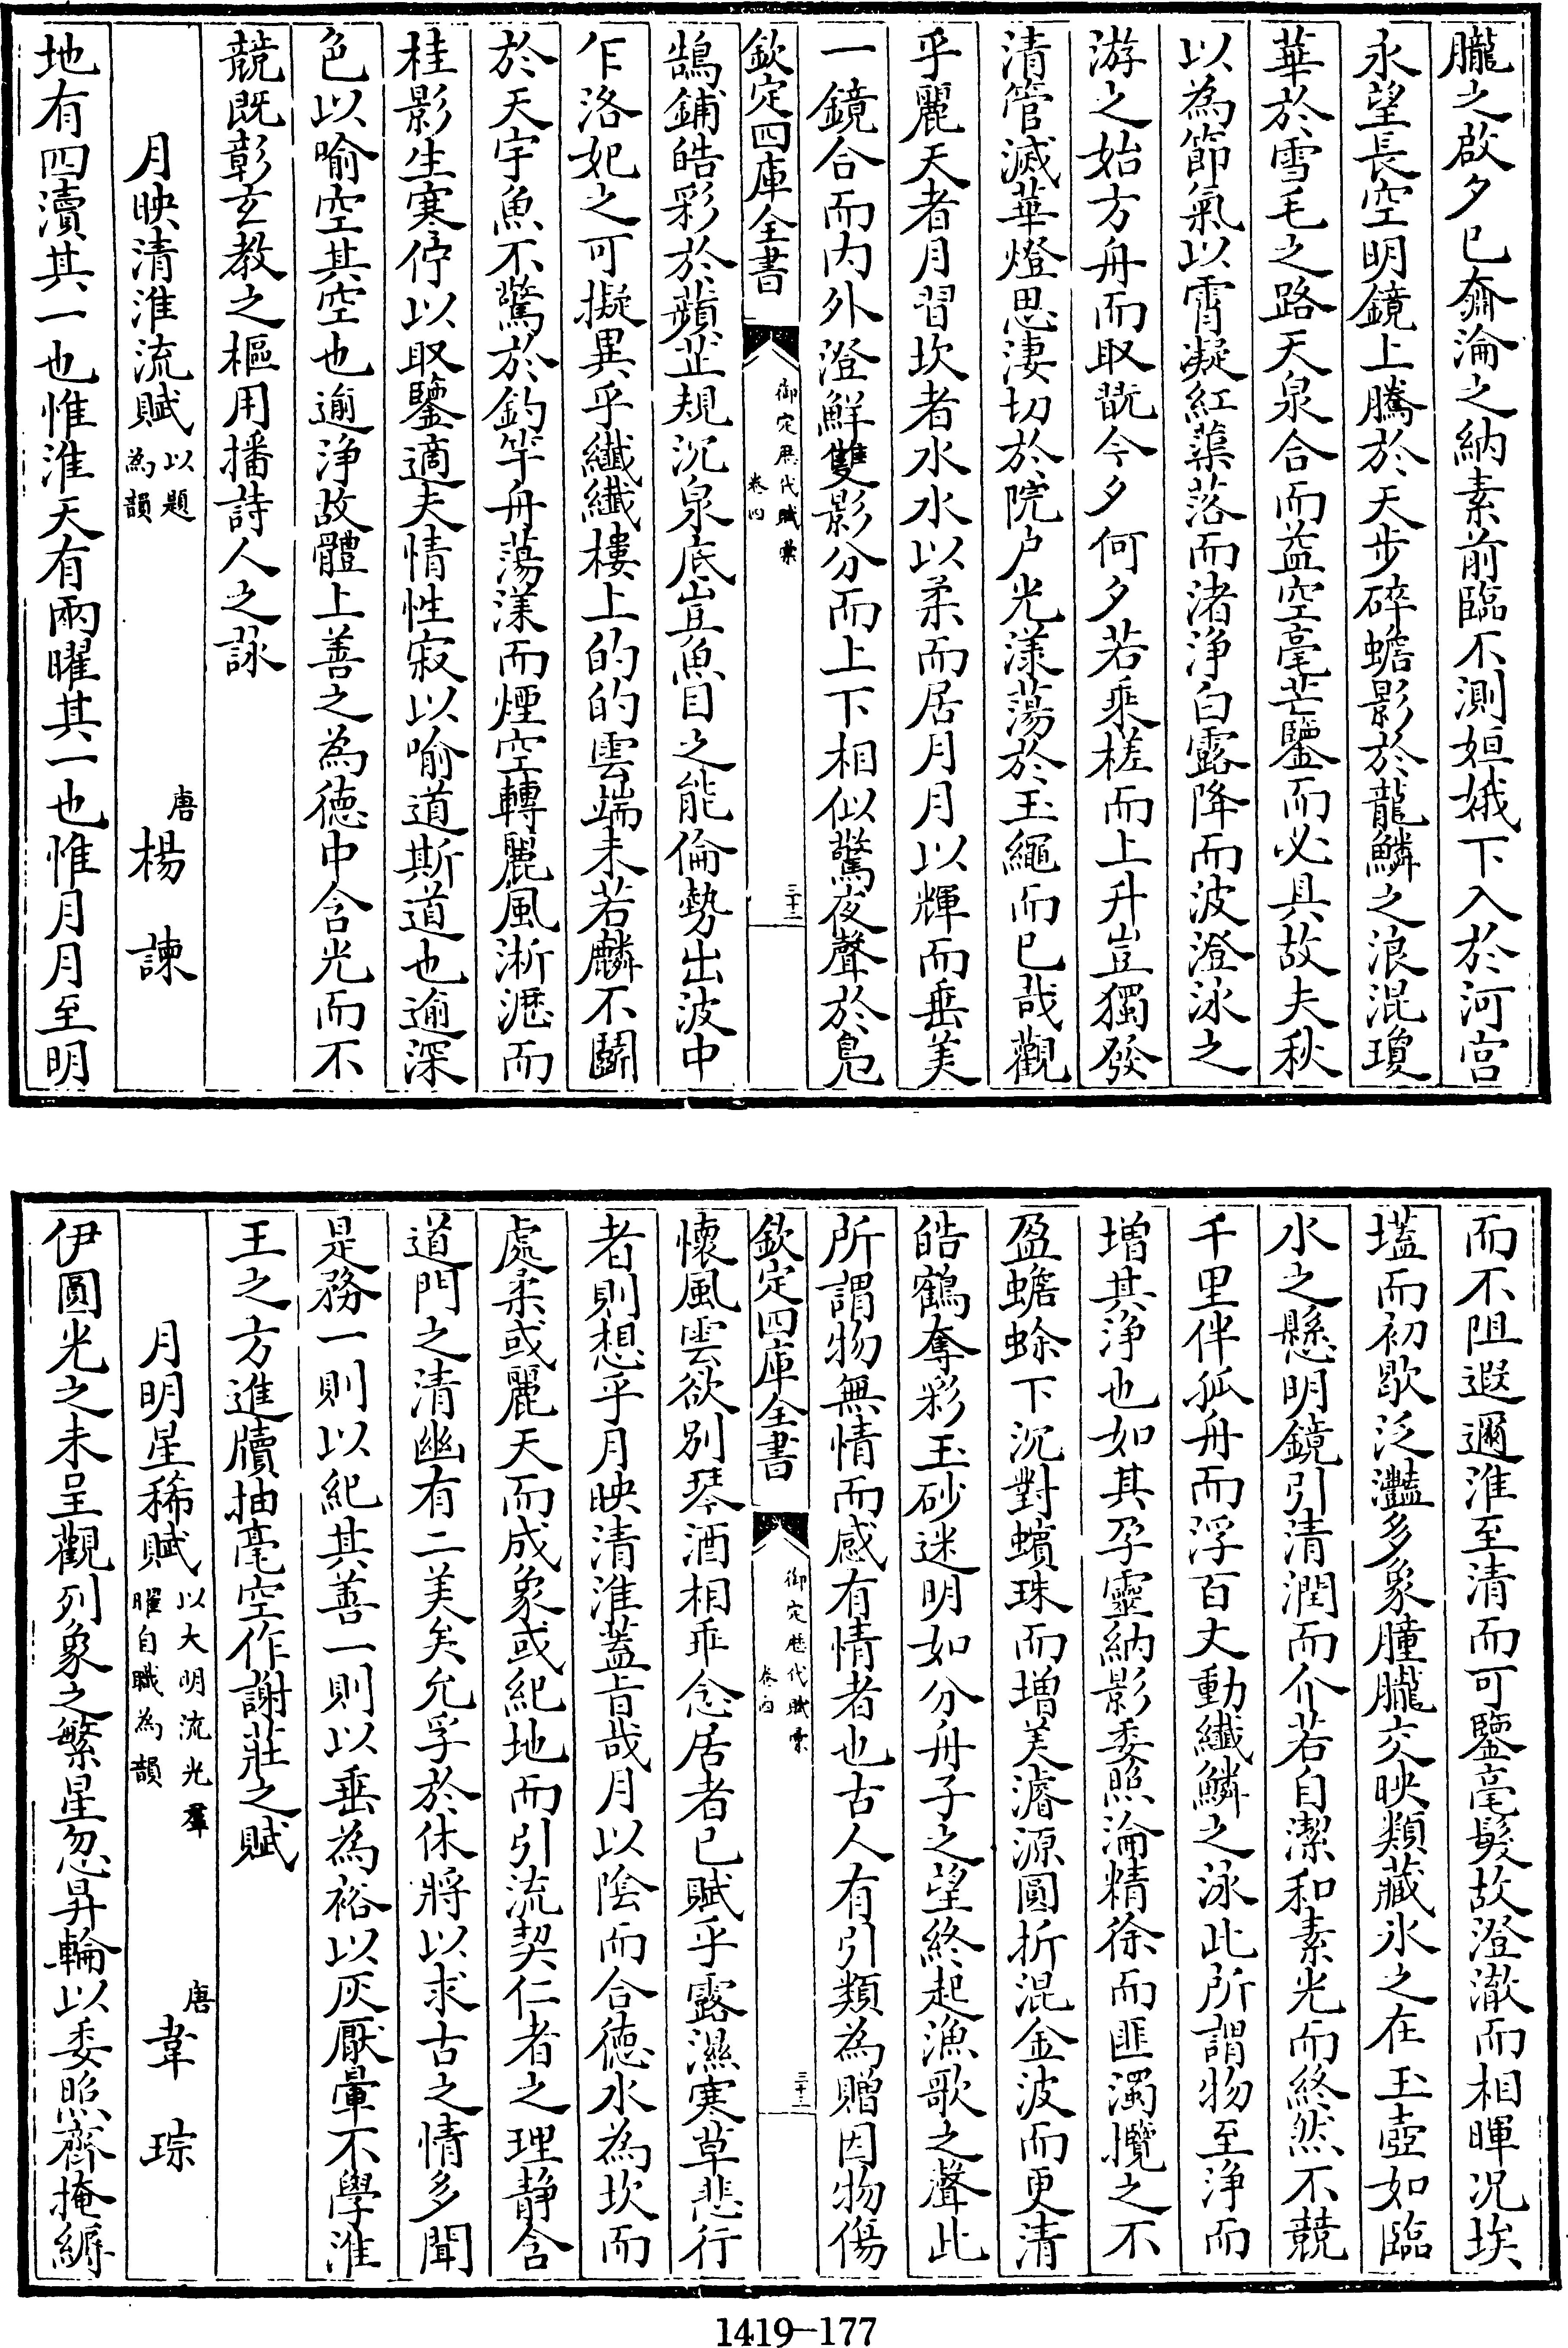 朧之啟夕已奫淪之納素前臨不測姮娥下入於河宫
永望長空明鏡上騰於天步碎蟾影於龍鱗之浪混瓊
華於雪毛之路天泉合而益空毫芒鑒而必具故夫秋
以為節氣以霄凝紅蕖落而渚浄白露降而波澄泳之
游之始方舟而取翫今夕何夕若乘槎而上升豈獨發
清管滅華燈思淒切於院户光漾蕩於玉繩而已哉觀
乎麗天者月習坎者水水以柔而居月月以輝而垂美
一鏡合而内外澄鮮雙影分而上下相似驚夜聲於鳧
欽定四庫全書
御定歴代賦彙
卷四
三十二
鵠鋪皓彩於蘋芷規沉泉底豈魚目之能倫勢出波中
乍洛妃之可擬異乎纖纖樓上的的雲端未若麟不鬬
於天宇魚不驚於釣竿舟蕩漾而煙空轉麗風淅瀝而
桂影生寒停以取鑒適夫情性寂以喻道斯道也逾深
色以喻空其空也逾浄故體上善之為徳中含光而不
競既彰玄教之樞用播詩人之詠
月映清淮流賦
以題
為韻
唐
楊諫
地有四瀆其一也惟淮天有兩曜其一也惟月月至明
而不阻遐邇淮至清而可鑒毫髮故澄澈而相暉况埃
壒而初歇泛灩多象朣朧交映類藏氷之在玉壺如臨
水之懸明鏡引清潤而介若自潔和素光而終然不競
千里伴孤舟而浮百丈動纖鱗之泳此所謂物至浄而
増其浄也如其孕靈納影委照淪精徐而匪濁攬之不
盈蟾蜍下沉對蠙珠而増美濬源圓折混金波而更清
皓鶴奪彩玉砂迷明如分舟子之望終起漁歌之聲此
所謂物無情而感有情者也古人有引類為贈因物傷
欽定四庫全書
御定歴代賦彙
卷四
三十三
懷風雲欲别琴酒相乖念居者已賦乎露濕寒草悲行
者則想乎月映清淮盖旨哉月以陰而合徳水為坎而
處柔或麗天而成象或紀地而引流契仁者之理静含
道門之清幽有二美矣允孚於休將以求古之情多聞
是務一則以紀其善一則以垂為裕以灰厭暈不學淮
王之方進牘抽毫空作謝莊之賦
月明星稀賦
以大明流光羣
曜自職為韻
唐
韋琮
伊圓光之未呈觀列象之繁星忽昇輪以委照齊掩縟
1419-177